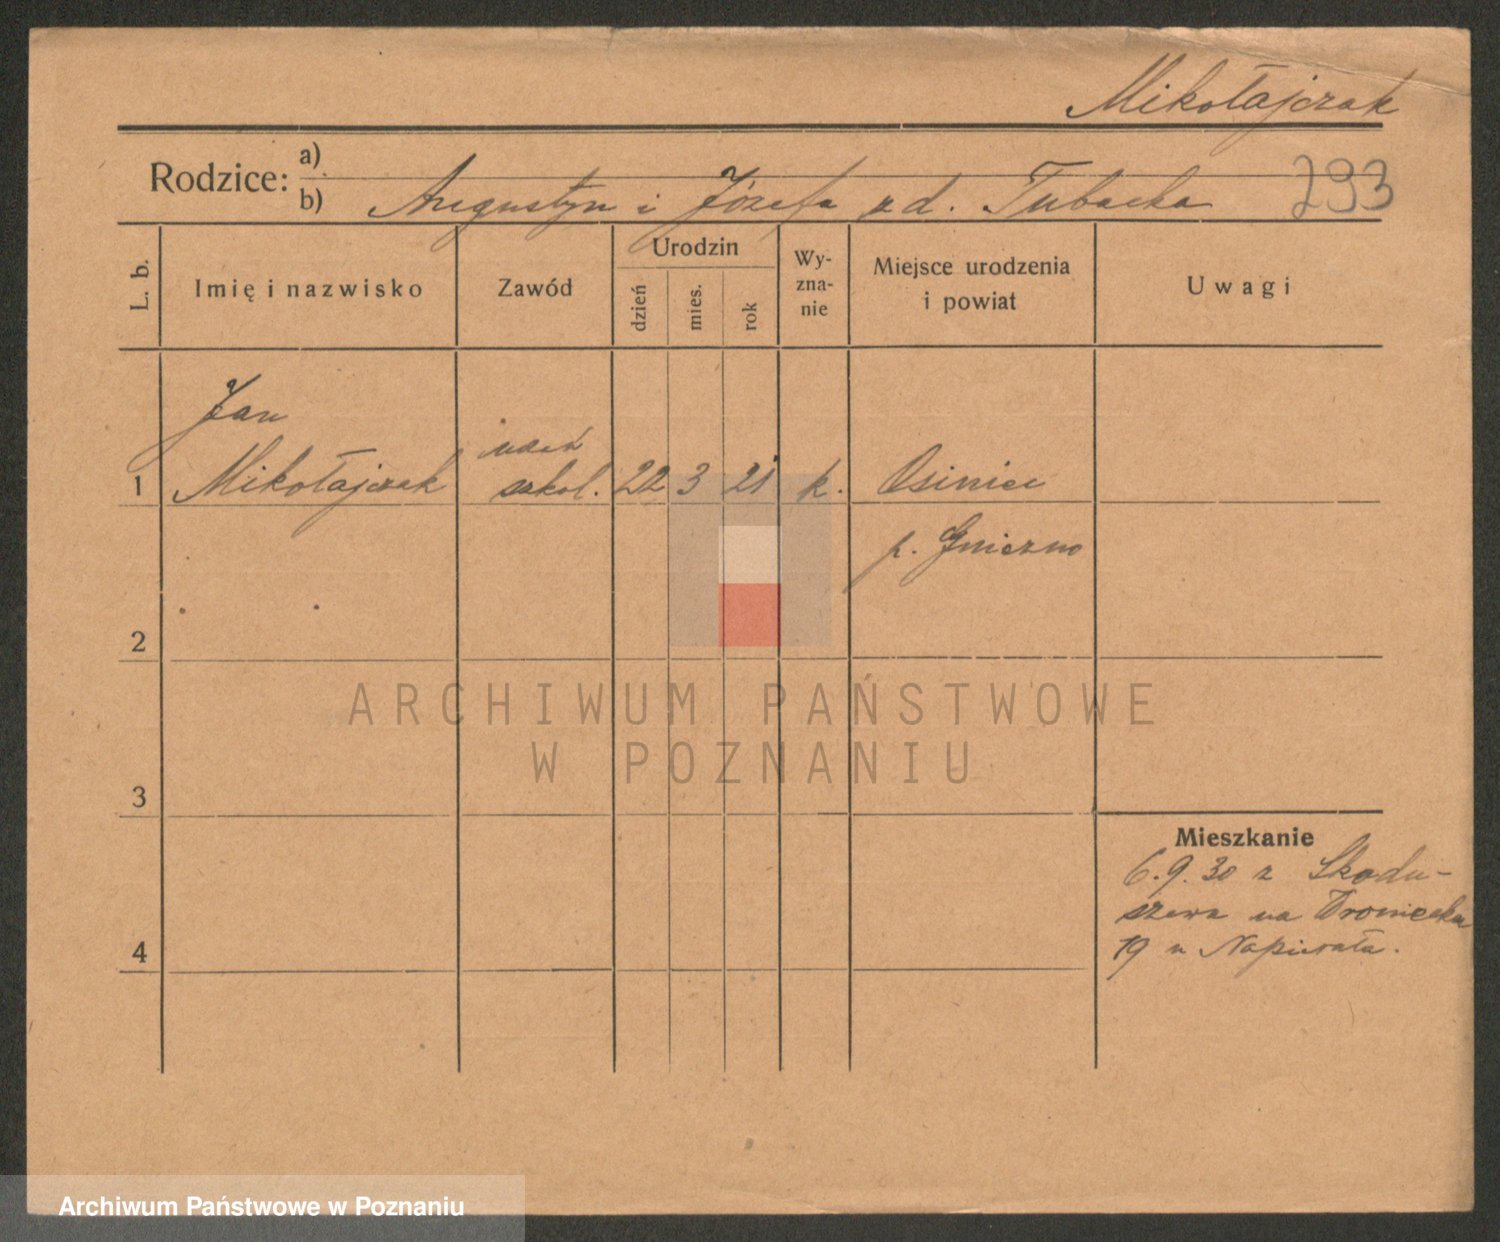 Mikołajczak
Rodzice: a)
b) Augustyn i Józefa z d. Tubacka
293
L. b.
Imię i nazwisko
Zawód
Urodzin
dzień
mies.
rok
Wy-
zna-
nie
Miejsce urodzenia
i powiat
Uwagi
Jan
1 Mikołajczak
szkol. 22 3 21 k. Osiniec
p. Gniezno
2
3
4
Mieszkanie
6.9.30 z Skodu-
szewa na
19 u Napierała.
ARCHIWUM PAŃSTWOWE
W POZNANIU
Archiwum Państwowe w Poznaniu